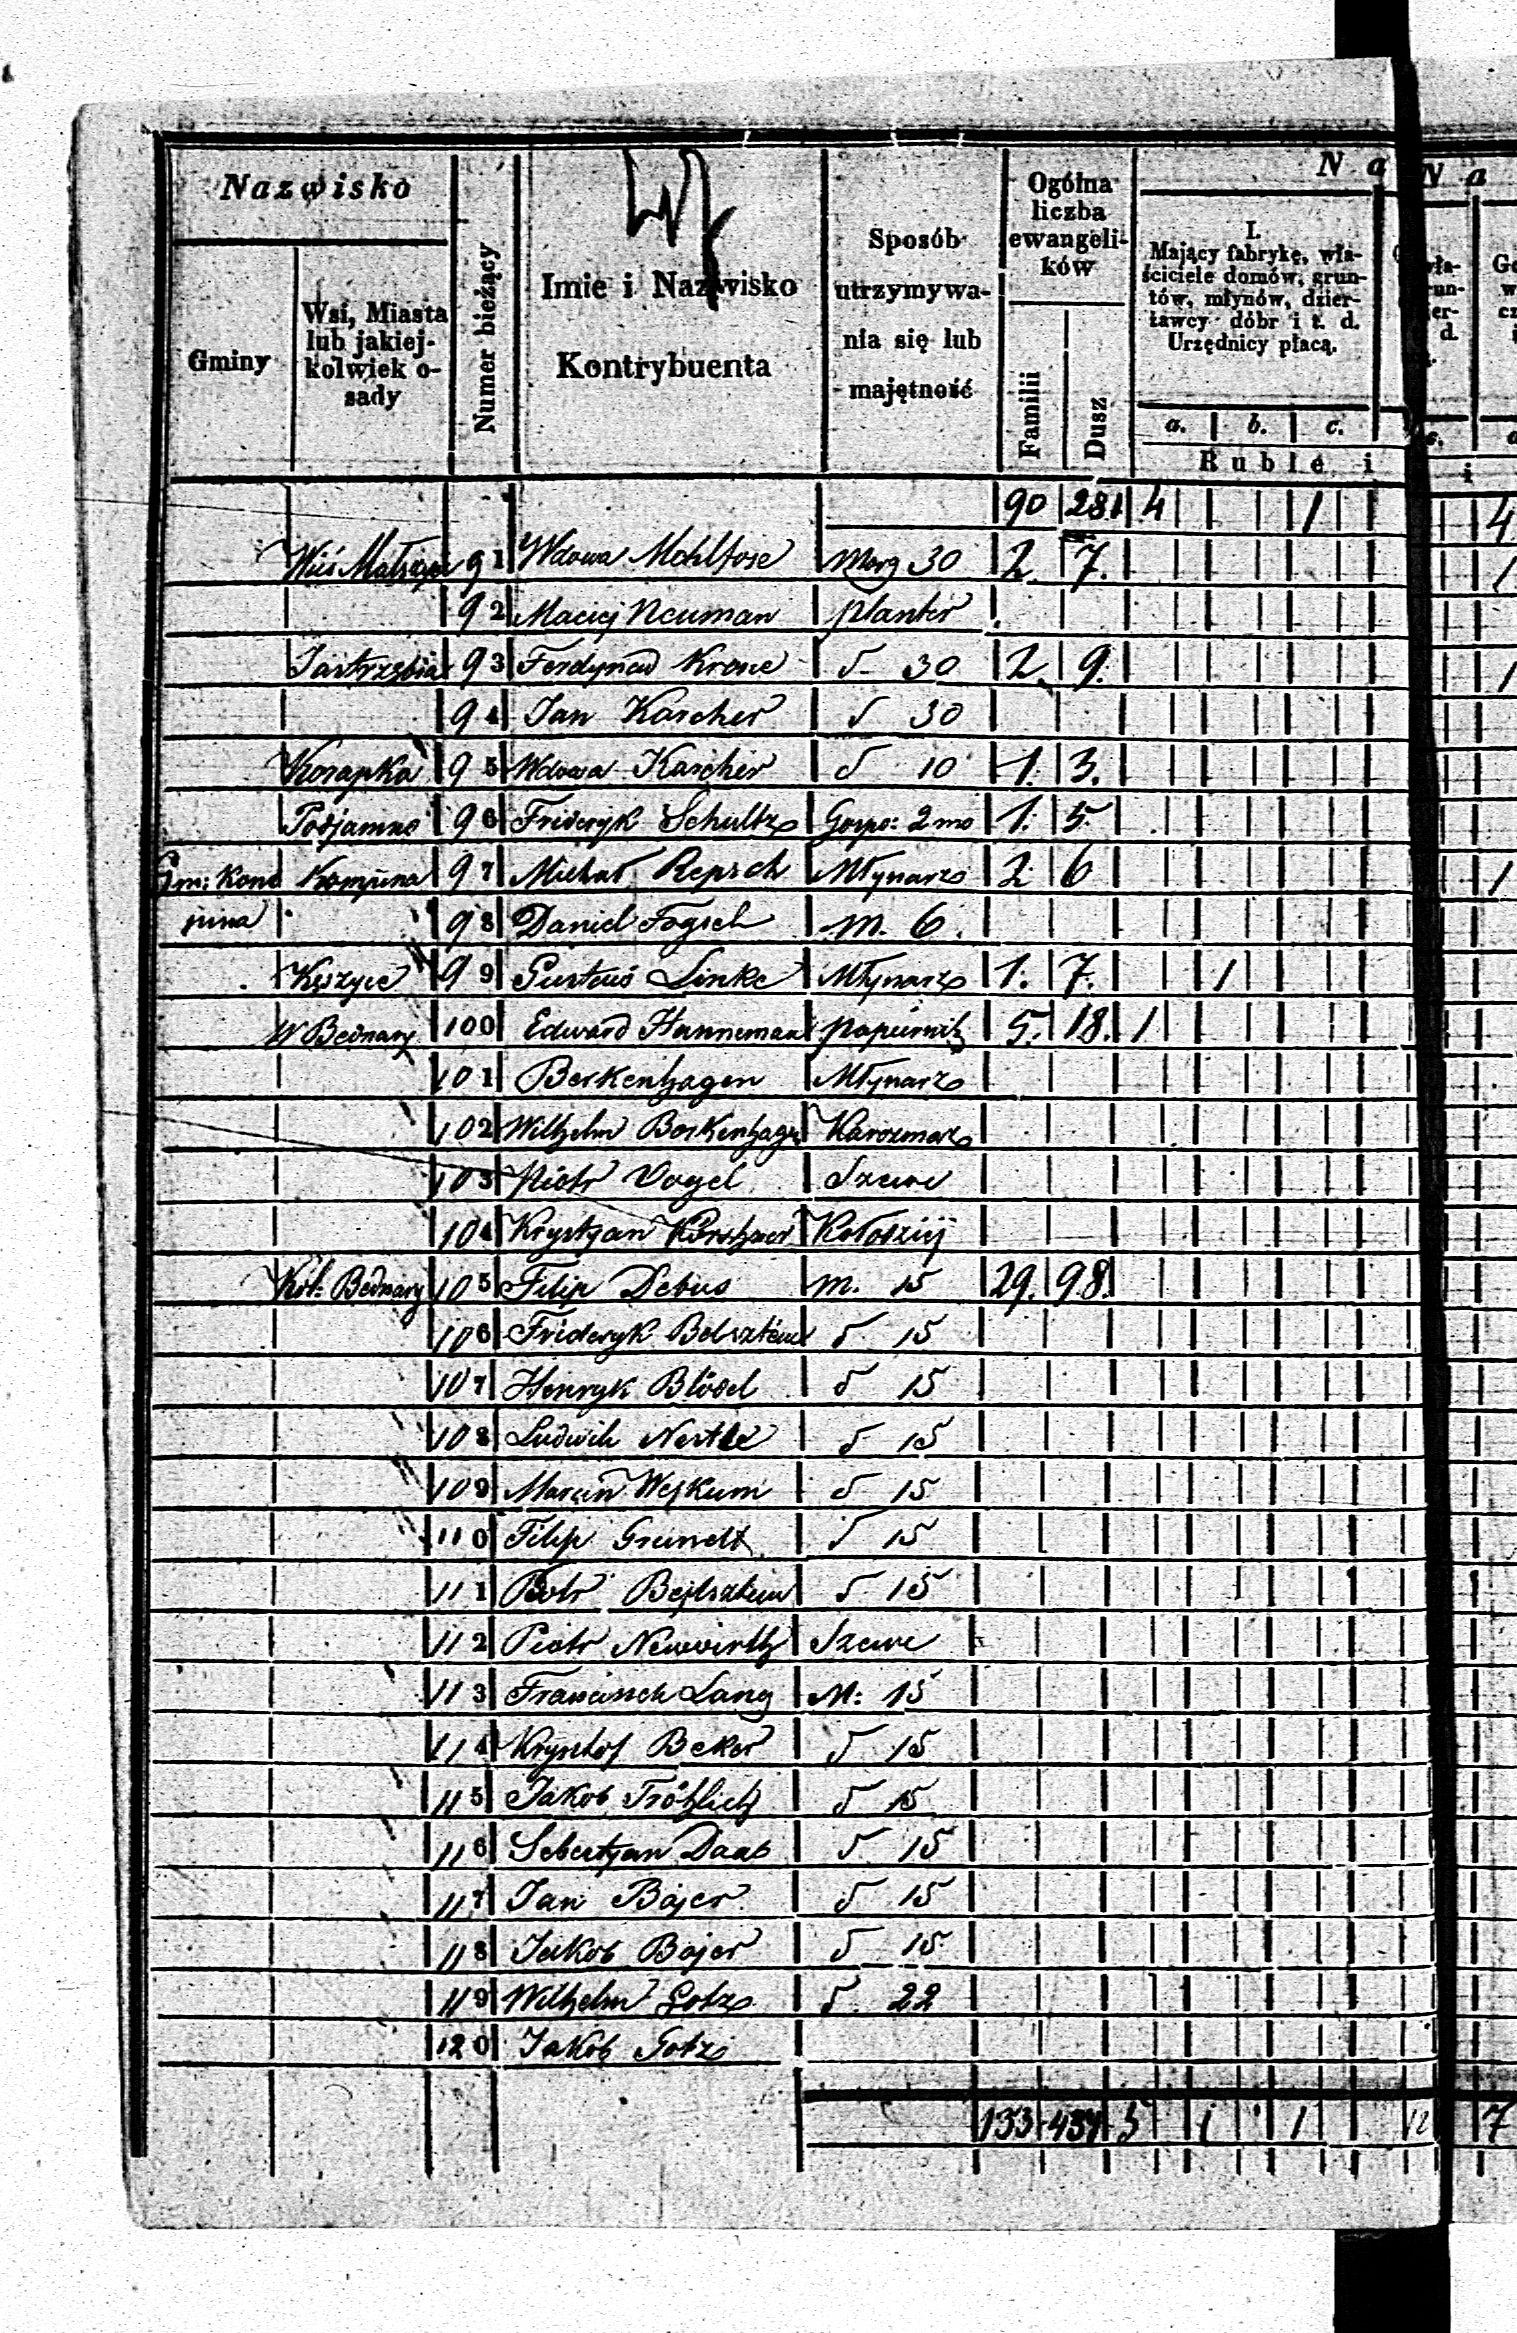 Nazwisko
Gminy
Wsi, Miasta lub jakiej-kolwiek o-sady
Numer bieżący
Imie i Nazwisko
Kontrybuenta
Sposób utrzymywa-nia się lub majętność
Ogólna liczba ewangeli-ków
Familii
Dusz
N a
I.
Mający fabrykę, wła-
ściciele domów, grun-
tów, młynów, dzier-
ławcy dóbr i t. d.
Urzędnicy płacą.
a. b. c.
Ruble i
90 281 4 1 4
Wieś 91 Wdowa Morg 30 2. 7. 1
92 Maciej Neuman planter
Jastrzębia 93 Ferdynad Krose d 30 2. 9. 1
94 Jan Karcher d 30
95 Wdowa Karcher d 10 1. 3.
96 Frideryk Schultz Gospo: 2 mo 1. 5.
Gm: Kom Kompina 97 Michał Repsch Młynarz 2 6 1
pina 98 Daniel Fogsch m. 6.
99 Linke Młynarz 1. 7. 1
W Bednary 100 Edward Hanneman 5. 18. 1
101 Berkenhagen Młynarz
102 Wilhelm Borkenhagen Karczmarz
103 Piotr Vogel Szewc
104 Krystyan Kołoziej
Kol: Bednary 105 Filip Debus m. 15 29. 98.
106 Frideryk d 15
107 Henryk Blödel d 15
108 Ludwik d 15
109 Marcin Wejkum d 15
110 Filip d 15
111 Piotr Bejlsztein d 15
112 Piotr Neuwirth Szewc
113 Lang M: 15
114 Krysztof Beker d 15
115 Jakob Fröhlich d 15
116 Sebestjan Daab d 15
117 Jan Bajer d 15
118 Jakob Bajer d 15
119 Wilhelm Gotz d 22
120 Jakob Gotz
133 434 5 1 1 12 7